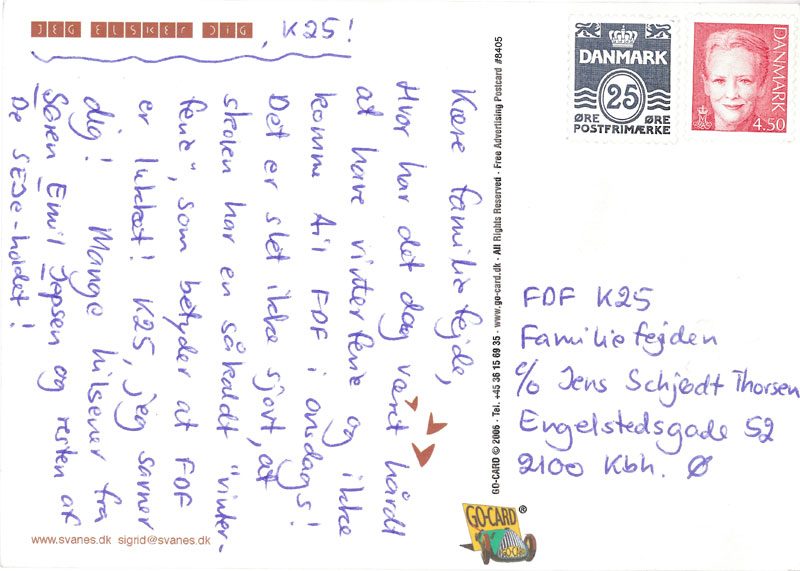 JEG ELSKER DIG
, K25!
Kære familiefejde,
Hvor har det dog været hårdt
at have vinterferie og ikke
komme til FDF i onsdags!
Det er slet ikke sjovt, at
skolen har en såkaldt "vinter-
ferie", som betyder at FDF
er lukket! K25, jeg savner
dig! Mange hilsener fra
Søren Emil Jepsen og resten af
De SEJe-holdet!
www.svanes.dk sigrid@svanes.dk
GO-CARD © 2006 · Tel. +45 36 15 69 35 · www.go-card.dk · All Rights Reserved · Free Advertising Postcard #8405
GO-CARD ®
GO-CARD
DANMARK
25
ØRE ØRE
POSTFRIMÆRKE
DANMARK
4.50
FDF K25
Familiefejden
c/o Jens Schjødt Thorsen
Engelstedsgade 52
2100 Kbh. Ø